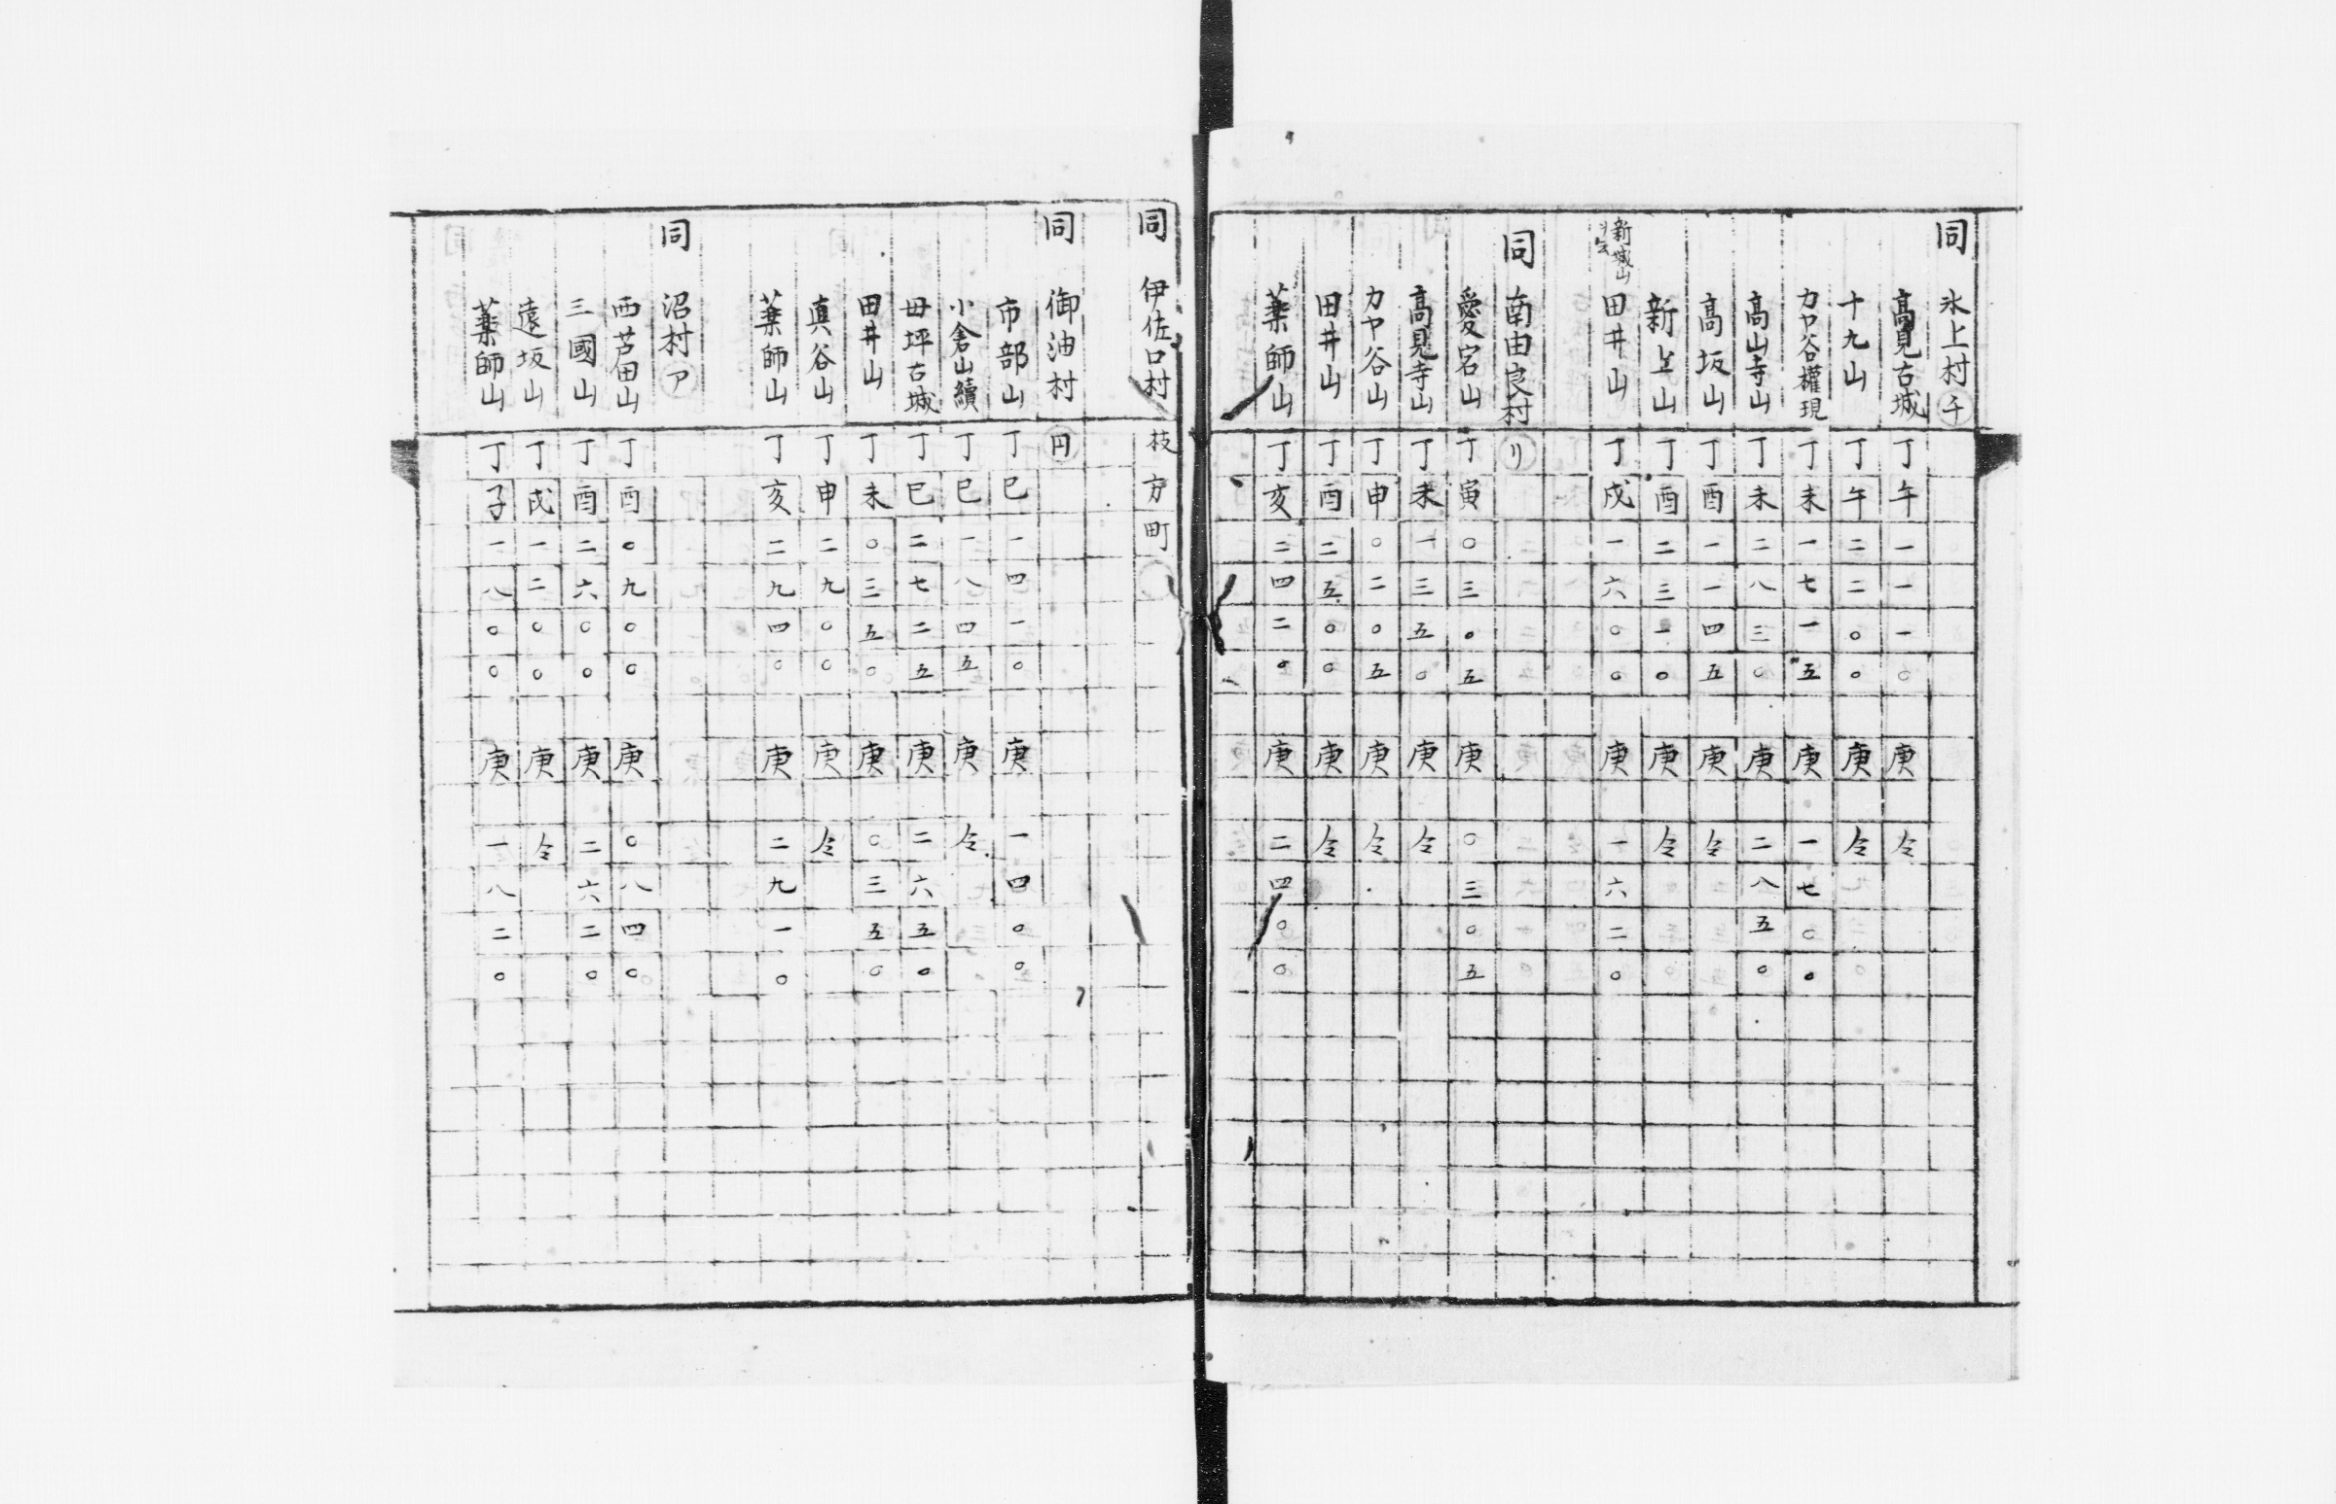 同 氷上村 チ
高見古城 丁午一一一〇 庚 仝
十九山 丁午二二〇〇 庚 仝
カヤ谷權現 丁未一七一五 庚 一七〇〇
高山寺山 丁未二八三〇 庚 二八五〇
高坂山 丁酉一一四五 庚 仝
新上山 丁酉二三一〇 庚 仝
新城山
田井山 丁戌一六〇〇 庚 一六二〇
同 南由良村 リ
愛宕山 丁寅〇三〇五 庚 〇三〇五
高見寺山 丁未一三五〇 庚 仝
カヤ谷山 丁申〇二〇五 庚 仝
田井山 丁酉二五〇〇 庚 仝
藥師山 丁亥二四二〇 庚 二四〇〇
同 伊佐口村 枝方町
同 御油村 円
市部山 丁巳一四一〇 庚 一四〇〇
小倉山續 丁巳一八四五 庚 仝
母坪古城 丁巳二七二五 庚 二六五〇
田井山 丁未〇三五〇 庚 〇三五〇
真谷山 丁申二九〇〇 庚 仝
藥師山 丁亥二九四〇 庚 二九一〇
同 沼村 ア
西芦田山 丁酉〇九〇〇 庚 〇八四〇
三國山 丁酉二六〇〇 庚 二六二〇
遠坂山 丁戌一二〇〇 庚 仝
藥師山 丁子一八〇〇 庚 一八二〇